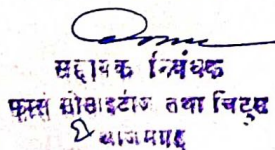 सहायक निबंधक
फर्म्स सोसाइटीज तथा चिट्स
आजमगढ़